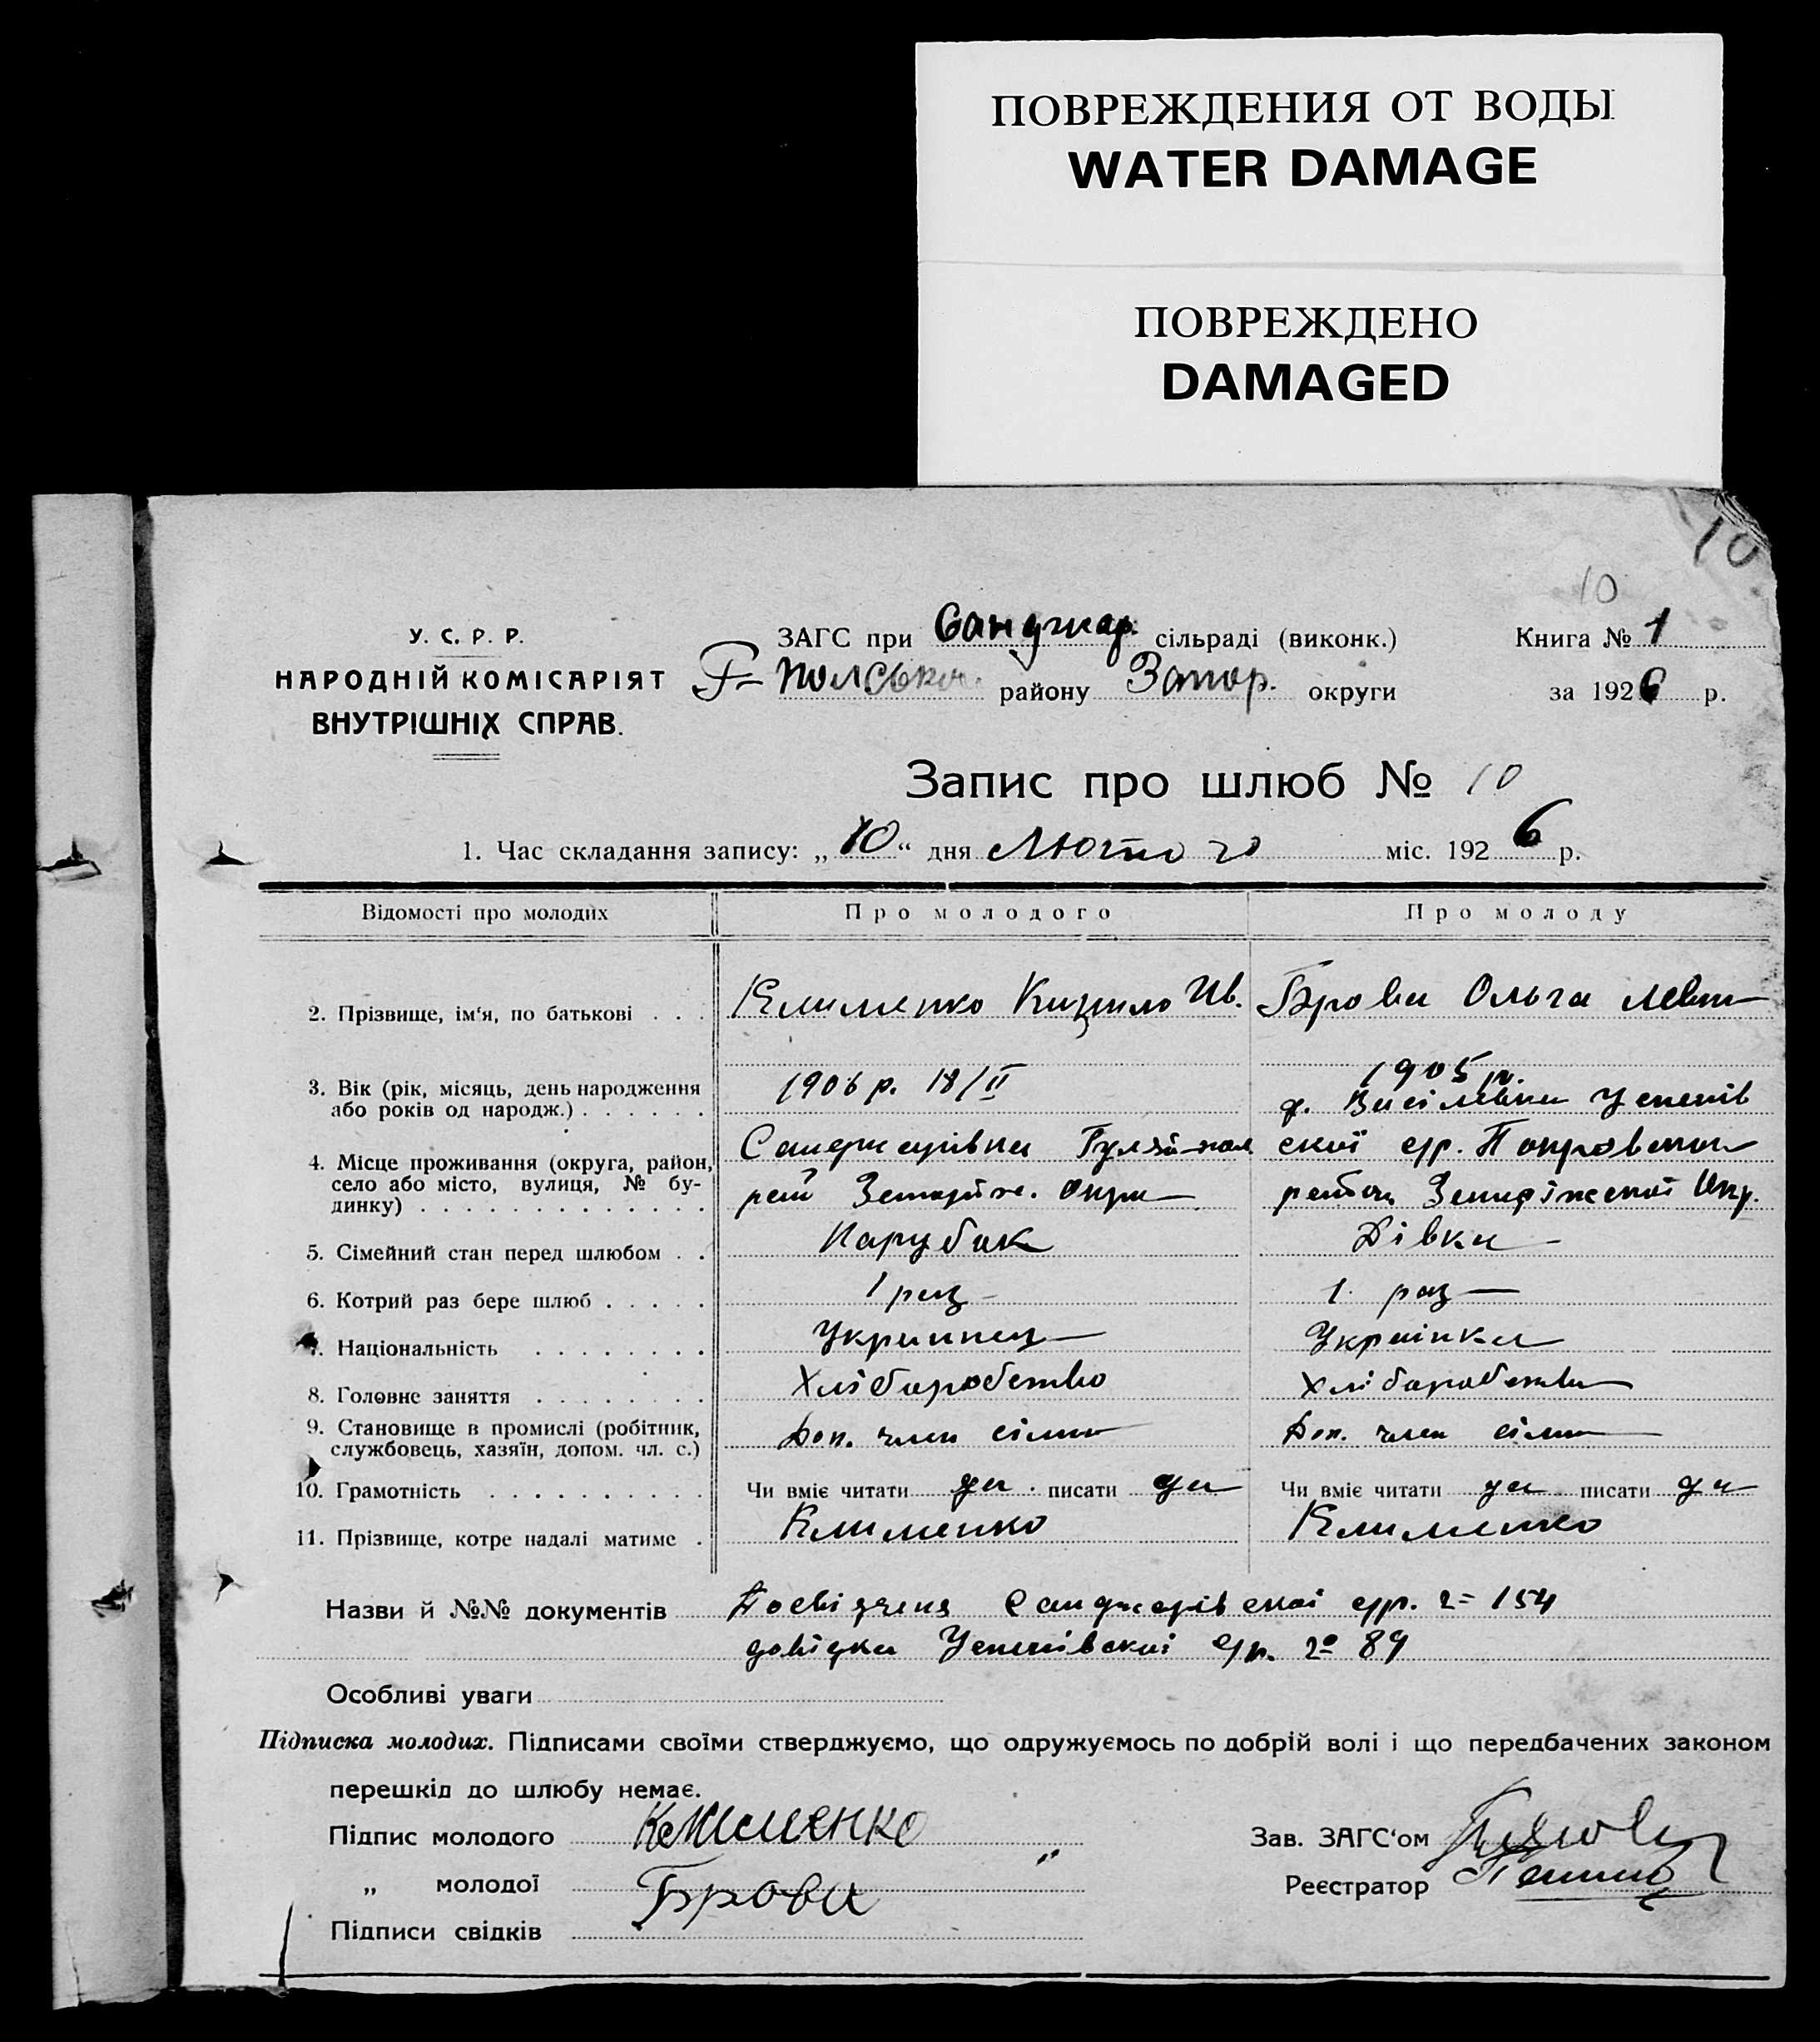 ПОВРЕЖДЕНИЯ ОТ ВОДЫ
WATER DAMAGE
ПОВРЕЖДЕНО
DAMAGED
10
10
У. С. Р. Р.
НАРОДНІЙ КОМІСАРІЯТ
ВНУТРІШНІХ СПРАВ.
ЗАГС при Санджар. сільраді (виконк.)
Г-Польсько району Запор. округи
Книга № 1
за 1926 р.
Запис про шлюб № 10
1. Час складання запису: „10“ дня Лютого міс. 1926 р.
Відомості про молодих Про молодого Про молоду
2. Прізвище, ім'я, по батькові . . . Клименко Кирило Ив. Брова Ольга
3. Вік (рік, місяць, день народження
або років од народж.) . . . . . . 1906 р. 18/II 1905 р.
4. Місце проживання (округа, район,
село або місто, вулиця, № бу-
динку) . . . . . . . . . . . . .
Санджарівка Гуляй-пол
рай Запоріж. Окру
х. Васілівка Успенів
ской с/р. Покровского
района Запоріжскоі Окр.
5. Сімейний стан перед шлюбом . . Парубак Дівка
6. Котрий раз бере шлюб . . . . . 1 раз 1. раз
7. Національність . . . . . . . . Украинец Украінка
8. Головне заняття . . . . . . . . Хліборобство Хліборобства
9. Становище в промислі (робітник,
службовець, хазяїн, допом. чл. с.) Доп. член сімї Доп. член сімї
10. Грамотність . . . . . . . . . . Чи вміє читати да писати да Чи вміє читати да писати да
11. Прізвище, котре надалі матиме . Клименко Клименко
Назви й №№ документів Посвідченя Санджарівскоі с/р. 154
довідка Успенівскоі с/р. 89
Особливі уваги
Підписка молодих. Підписами своїми стверджуємо, що одружуємось по добрій волі і що передбачених законом
перешкід до шлюбу немає.
Підпис молодого Клименко
„ молодої Брова
Підписи свідків
Зав. ЗАГС'ом
Реєстратор